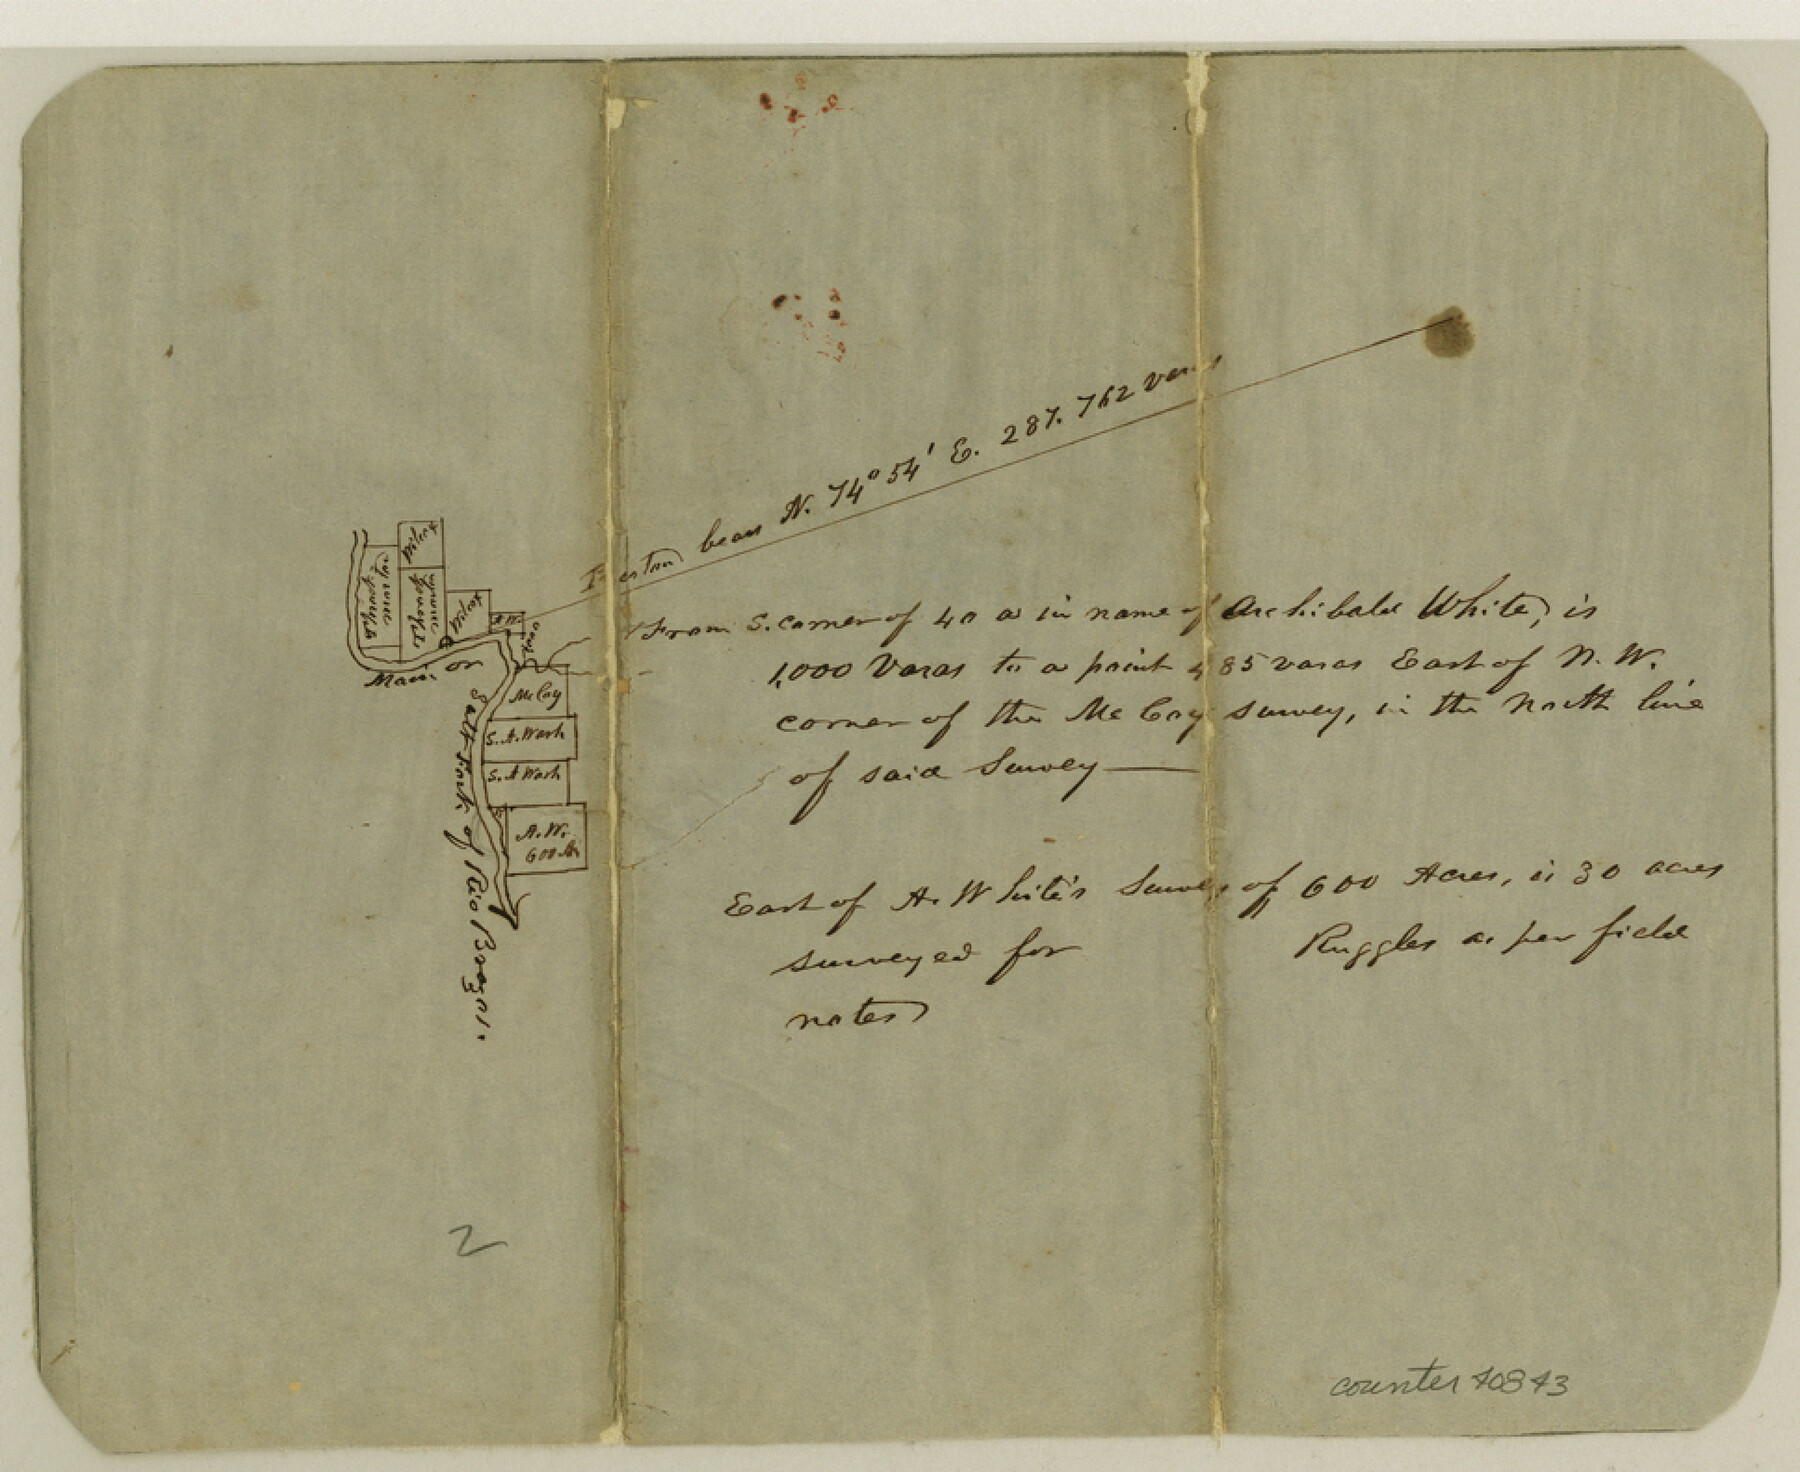 bears N. 74° 54' E. 287.762 varas
From S. corner of 40 a in name of Archibald White, is
1,000 Varas to a point 485 varas East of N. W.
corner of the McCoy survey, in the North line
of said Survey —
East of A. White's Survey of 600 Acres, is 30 acres
surveyed for Ruggles as per field
notes
Wilcox
Wilcox
A.W.
Main or
Salt Fork of Rio Brazos.
McCoy
S. A. Wash
S. A Wash
A. W.
600 A
2
counter 40843